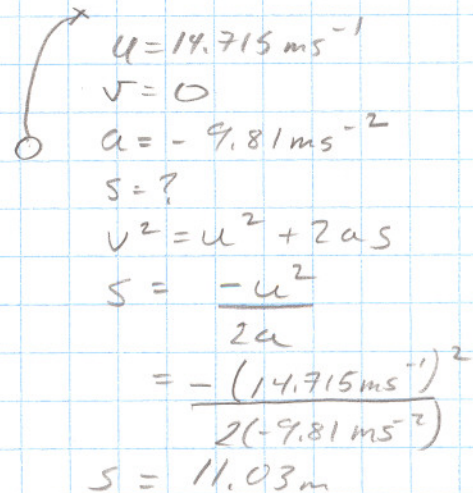 u = 14.715 ms⁻¹
v = 0
a = - 9.81 ms⁻²
s = ?
v² = u² + 2as
s = -u² / 2a
= -(14.715 ms⁻¹)² / 2(-9.81 ms⁻²)
s = 11.03 m